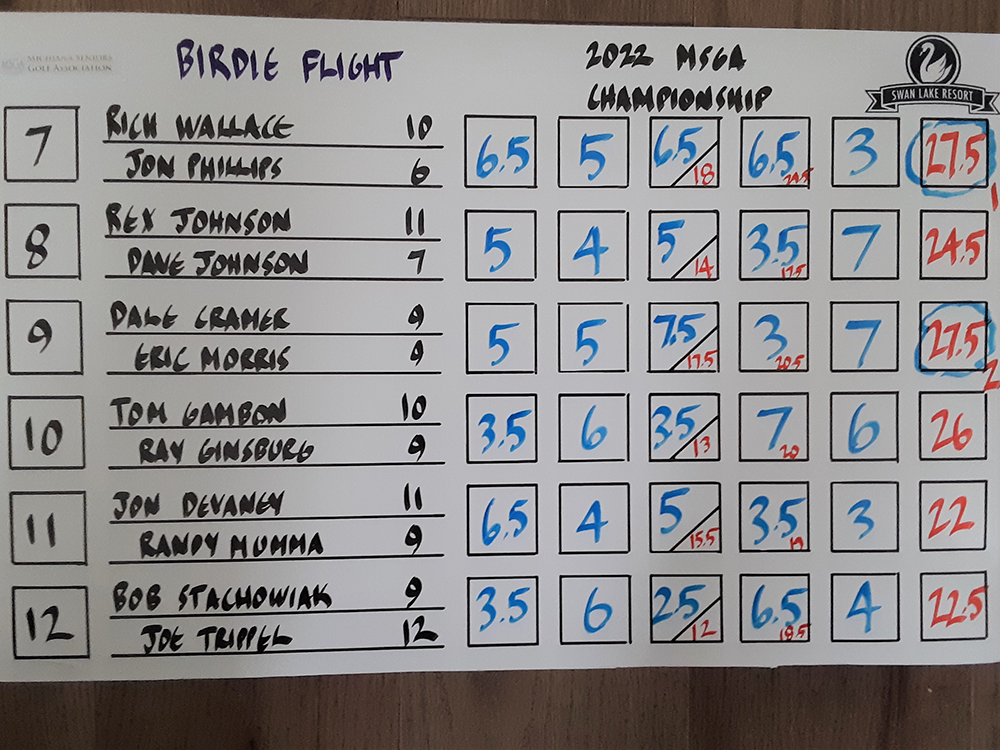 MICHIANA SENIORS
GOLF ASSOCIATION
BIRDIE FLIGHT
2022 MSGA
CHAMPIONSHIP
SWAN LAKE RESORT
7 RICH WALLACE 10 6.5 5 6.5 18 6.5 24.5 3 27.5 1
JON PHILLIPS 6
8 REX JOHNSON 11 5 4 5 14 3.5 17.5 7 24.5
DAVE JOHNSON 7
9 DALE CRAMER 9 5 5 7.5 17.5 3 20.5 7 27.5 2
ERIC MORRIS 9
10 TOM GAMBON 10 3.5 6 3.5 13 7 20 6 26
RAY GINSBURG 9
11 JON DEVANEY 11 6.5 4 5 15.5 3.5 19 3 22
RANDY MUMMA 9
12 BOB STACHOWIAK 9 3.5 6 2.5 12 6.5 18.5 4 22.5
JOE TRIPPEL 12